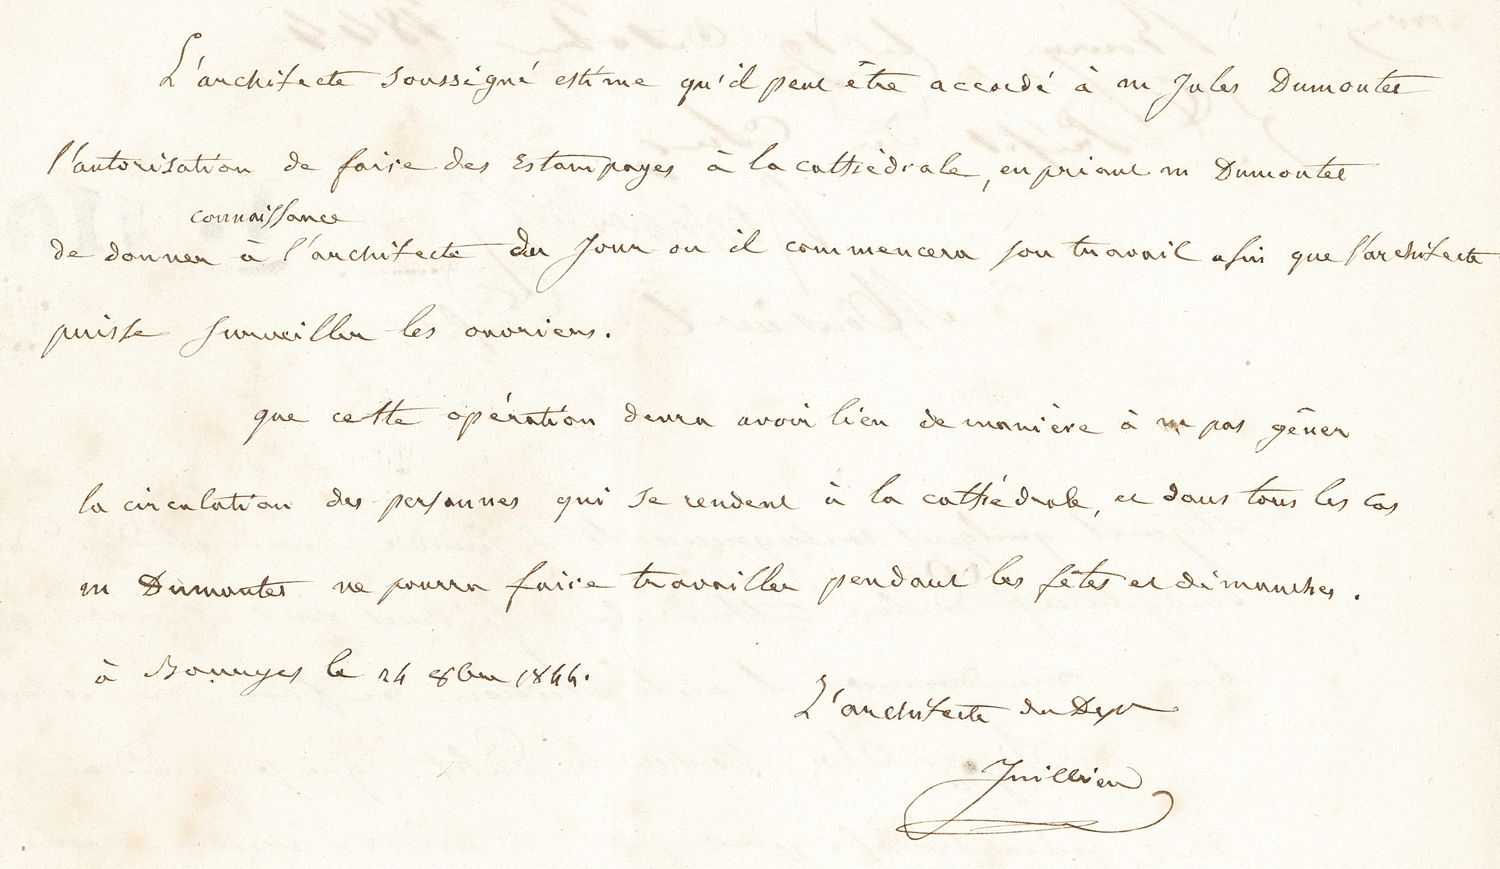 L'architecte soussigné estime qu'il peut être accordé à m Jules Dumoutet
l'autorisation de faire des Estampages à la cathédrale, en priant m Dumoutet
connaissance
de donner à l'architecte du Jour ou il commencera son travail afin que l'architecte
puisse surveiller les ouvriers.
que cette opération devra avoir lieu de manière à ne pas gêner
la circulation des personnes qui se rendent à la cathédrale, et dans tous les cas
m Dumoutet ne pourra faire travailler pendant les fêtes et dimanches.
à Bourges le 24 8bre 1844.
L'architecte du Dépt
Juillien